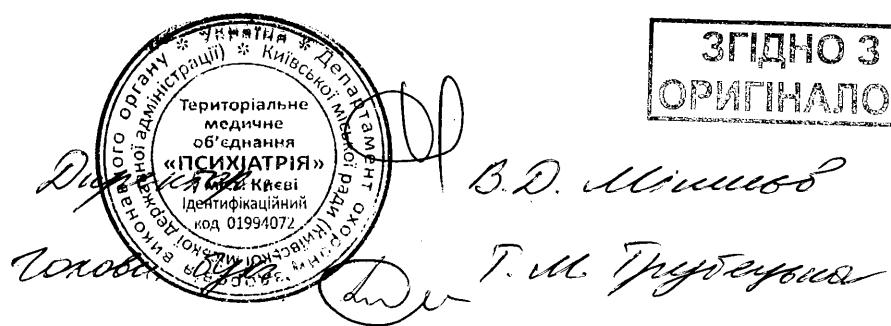 ЗГІДНО З
ОРИГІНАЛО
* Україна * Департамент охорони здоров'я виконавчого органу
Київської міської ради (Київської міської державної адміністрації) *
Територіальне
медичне
об'єднання
«ПСИХІАТРІЯ»
у місті Києві
Ідентифікаційний
код 01994072
Директор В.Д. Мішиєв
Т.М. Трубецька